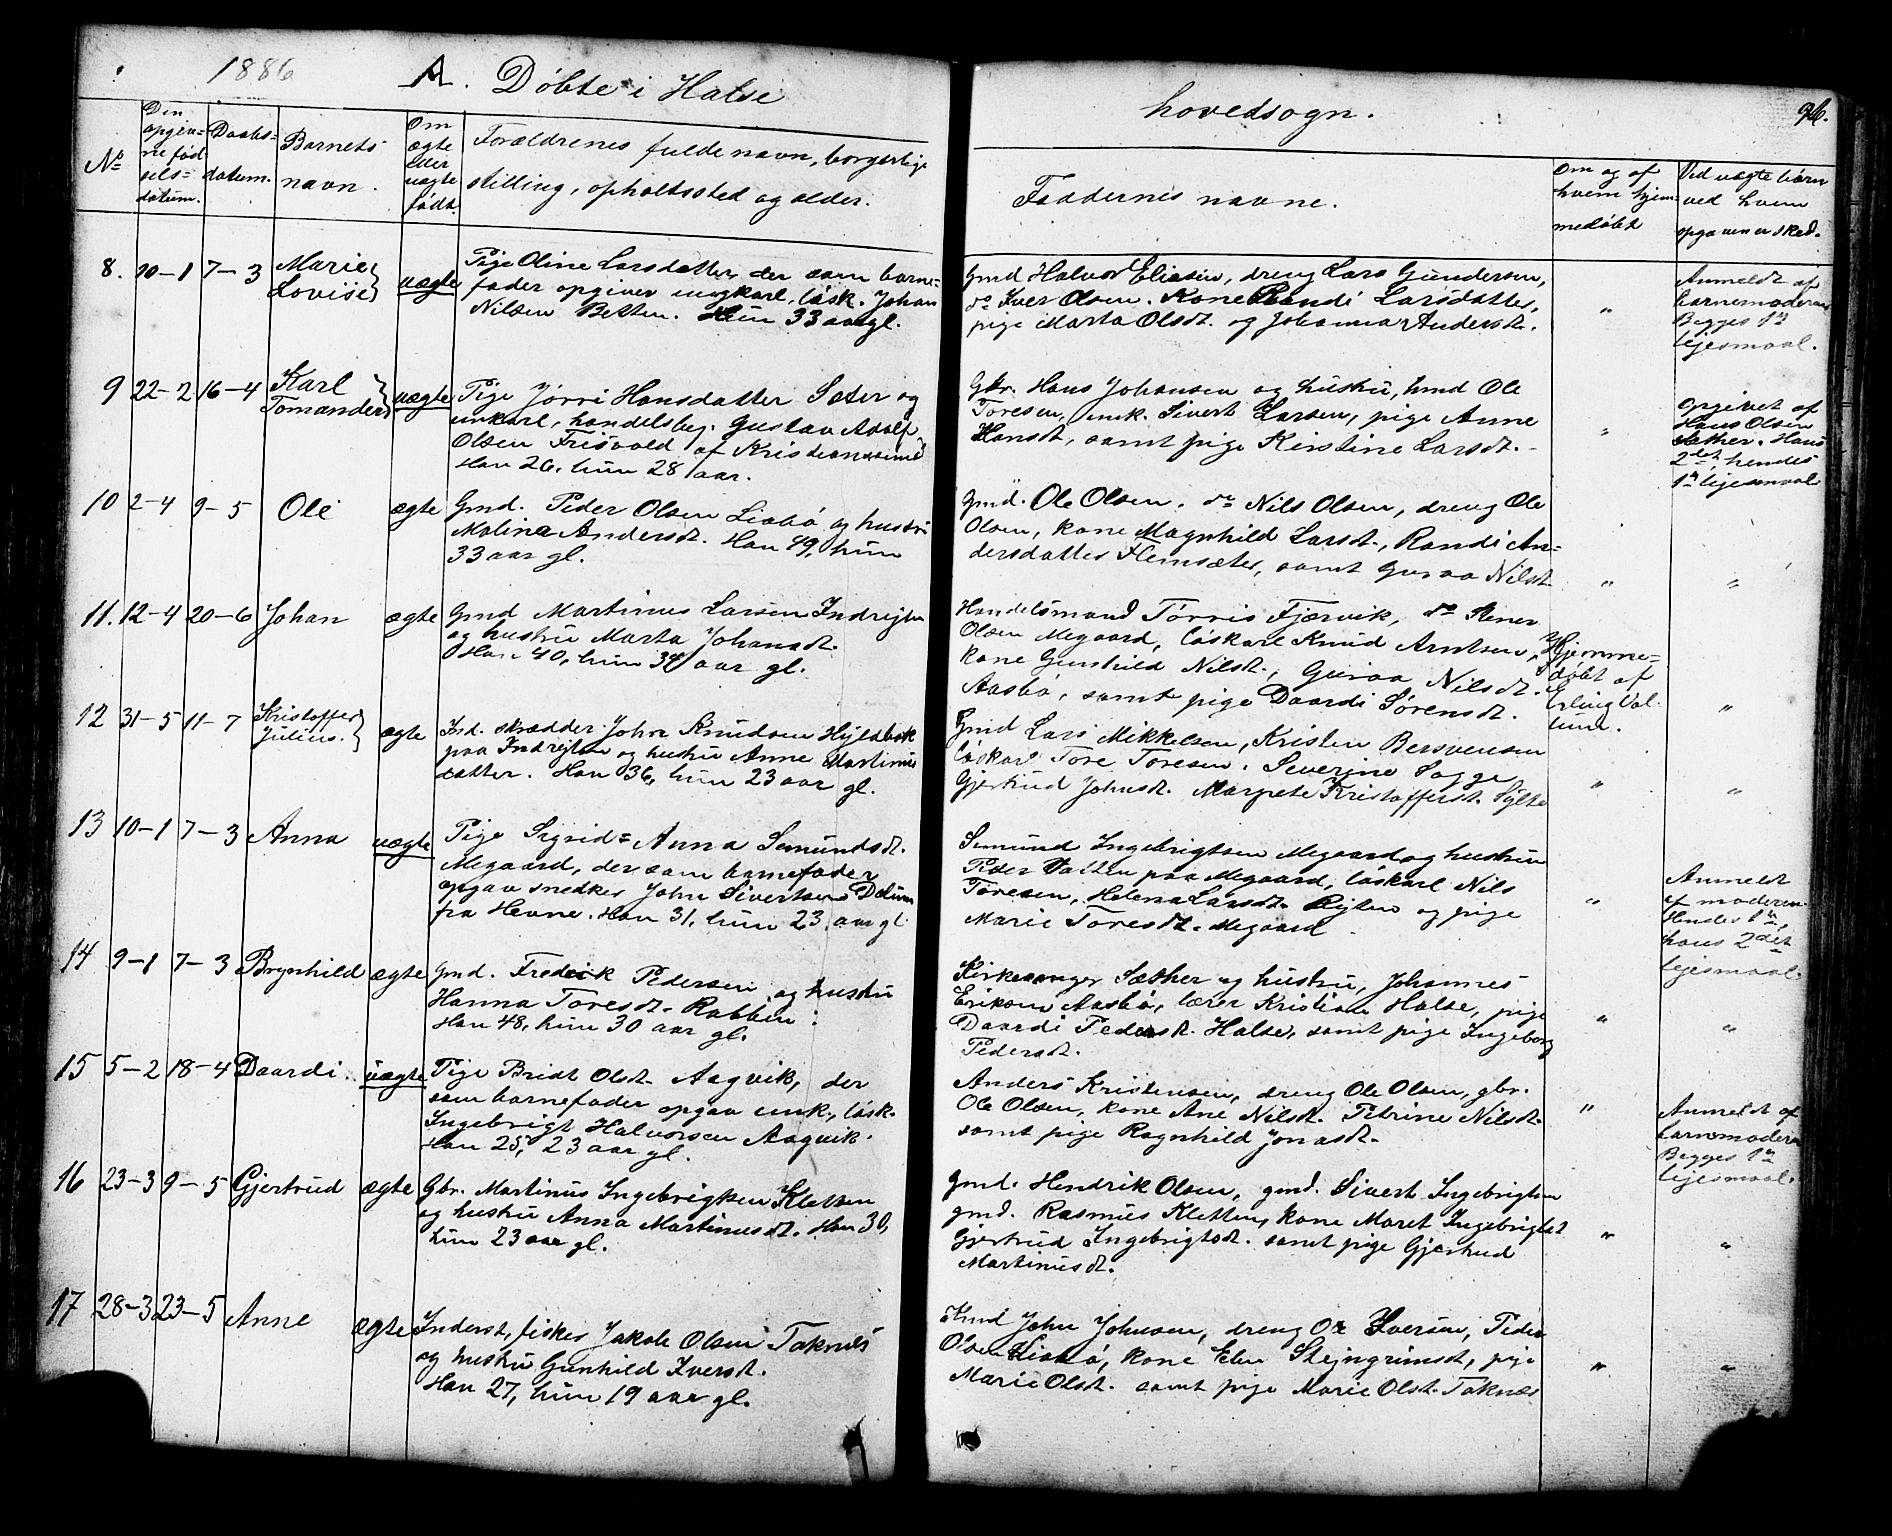 1886 A. Døbte i Halse
hovedsogn. 96.
No
Den
opgiv=
ne fød
sels=
datum.
Daabs-
datum.
Barnets
navn.
Om
ægte
eller
uægte
født.
Forældrenes fulde navn, borgerlige
stilling, opholtssted og alder.
Faddernes navne.
Om og af
hvem hjem-
medøbt
Ved uægte børn
ved hvem
opgaven er sked.
8. 10-1 7-3 Marie
Lovise
uægte
Pige Oline Larsdatter, der som barne=
fader opgiver ungkarl, løsk. Johan
Nilsen Betten. Hun 33 aar gl.
Gmd Halvor Eliasen, dreng Lars Gundersen,
do Iver Olsen. Kone Randi Larsdatter,
pige Marta Olsdt. og Johanna Andersdt.
"
Anmeldt af
barnemoderen
Begges 1ste
lejesmaal.
9 22-2 16-4 Karl
Tomander
uægte
Pige Jørri Hansdatter Sæter og
unkarl, handelsbej. Gustav Adolf
Olsen Frisvold af Kristianssund
Han 26, hun 28 aar.
Gbr. Hans Johansen og hustru, hmd Ole
Toresen, unk. Sivert Larsen, pige Anne
Hansdt, samt pige Kirstine Larsdt.
"
Opgivet af
Hans Olsen
Sæther. Hans
2det, hendes
1ste lejesmaal
10 2-4 9-5 Ole
ægte
Gmd. Peder Olsen Liabø og hustru
Malina Andersdt. Han 49, hun
33 aar gl.
Gmd. Ole Olsen. do Nils Olsen, dreng Ole
Olsen, kone Magnhild Larsdt., Randi An=
dersdatter Hemsæter, samt Guroa Nilsdt
" "
11. 12-4 20-6 Johan
ægte
Gmd Martinus Larsen Indrejten
og hustru Marta Johansdt.
Han 40, hun 34 aar gl.
Handelsmand Tørris Fjærvik, do Stener
Olsen Megaard, løskarl Knud Arntsen,
kone Gunhild Nilsdt., Guroa Nilsdt.
Aasbø, samt pige Daardi Sørensdt.
Hjemme=
døbt af
Erling Val-
lund.
"
12 31-5 11-7 Kristoffer
Julius.
ægte
Ind. skrædder John Knudsen Hjeldbak
paa Indrejten og hustru Anne Martinus
datter. Han 36, hun 23 aar gl.
Gmd Lars Mikkelsen, Kristen Bersvensen
løskarl Tore Toresen. Severine Sagge
Gjertrud Johnsdt. Margrete Kristoffersdt. Sylte
" "
13 10-1 7-3 Anna
uægte
Pige Sigrid=Anna Semundsdt.
Megaard, der som barnefader
opgav snedker John Sivertsen Dalum
fra Hevne. Han 31, hun 23 aar gl
Semund Ingebrigtsen Megaard og hustru
Peder Vatten paa Megaard, løskarl Nils
Toresen, Helena Larsdt. Rejten og pige
Marie Toresdt. Megaard
"
Anmeldt
af moderen.
Hendes 1ste,
hans 2det
lejesmaal.
14 9-1 7-3 Brynhild
ægte
Gmd. Fredrik Pedersen og hustru
Hanna Toresdt. Rabben.
Han 48, hun 30 aar gl.
Kirkesanger Sæther og hustru, Johannes
Eriksen Aasbø, lærer Kristian Halse, pige
Daardi Pedersdt. Halse, samt pige Ingeborg
Pedersdt.
" "
15 5-2 18-4 Daardi.
uægte
Pige Bridt Olsdt. Aagvik, der
som barnefader opgav unk., løsk.
Ingebrigt Halvorsen Aagvik.
Han 25, 23 aar gl.
Anders Kristensen, dreng Ole Olsen, gbr.
Ole Olsen, kone Ane Nilsdt. Petrine Nilsdt.
samt pige Ragnhild Jonasdt.
"
Anmeldt af
barnemoderen
Begges 1ste
lejesmaal.
16 23-3 9-5 Gjertrud
ægte
Gbr. Martinus Ingebrigtsen Kletten
og hustru Anna Martinusdt. Han 30,
hun 23 aar gl.
Gmd. Hendrik Olsen, gmd. Sivert Ingebrigtsen
gmd. Rasmus Kletten, kone Maret Ingebrigtsdt
Gjertrud Ingebrigtsdt. samt pige Gjertrud
Martinusdt.
" "
17 28-3 23-5 Anne
ægte
Inderst, fisker Jakob Olsen Taknes
og hustru Gunhild Iversdt.
Han 27, hun 19 aar gl.
Kmd John Johnsen, dreng Ole Iversen, Peder
Olsen Liabø, kone Elen Stejngrimsdt, pige
Marie Olsdt. samt pige Marie Olsdt. Taknæs
" "